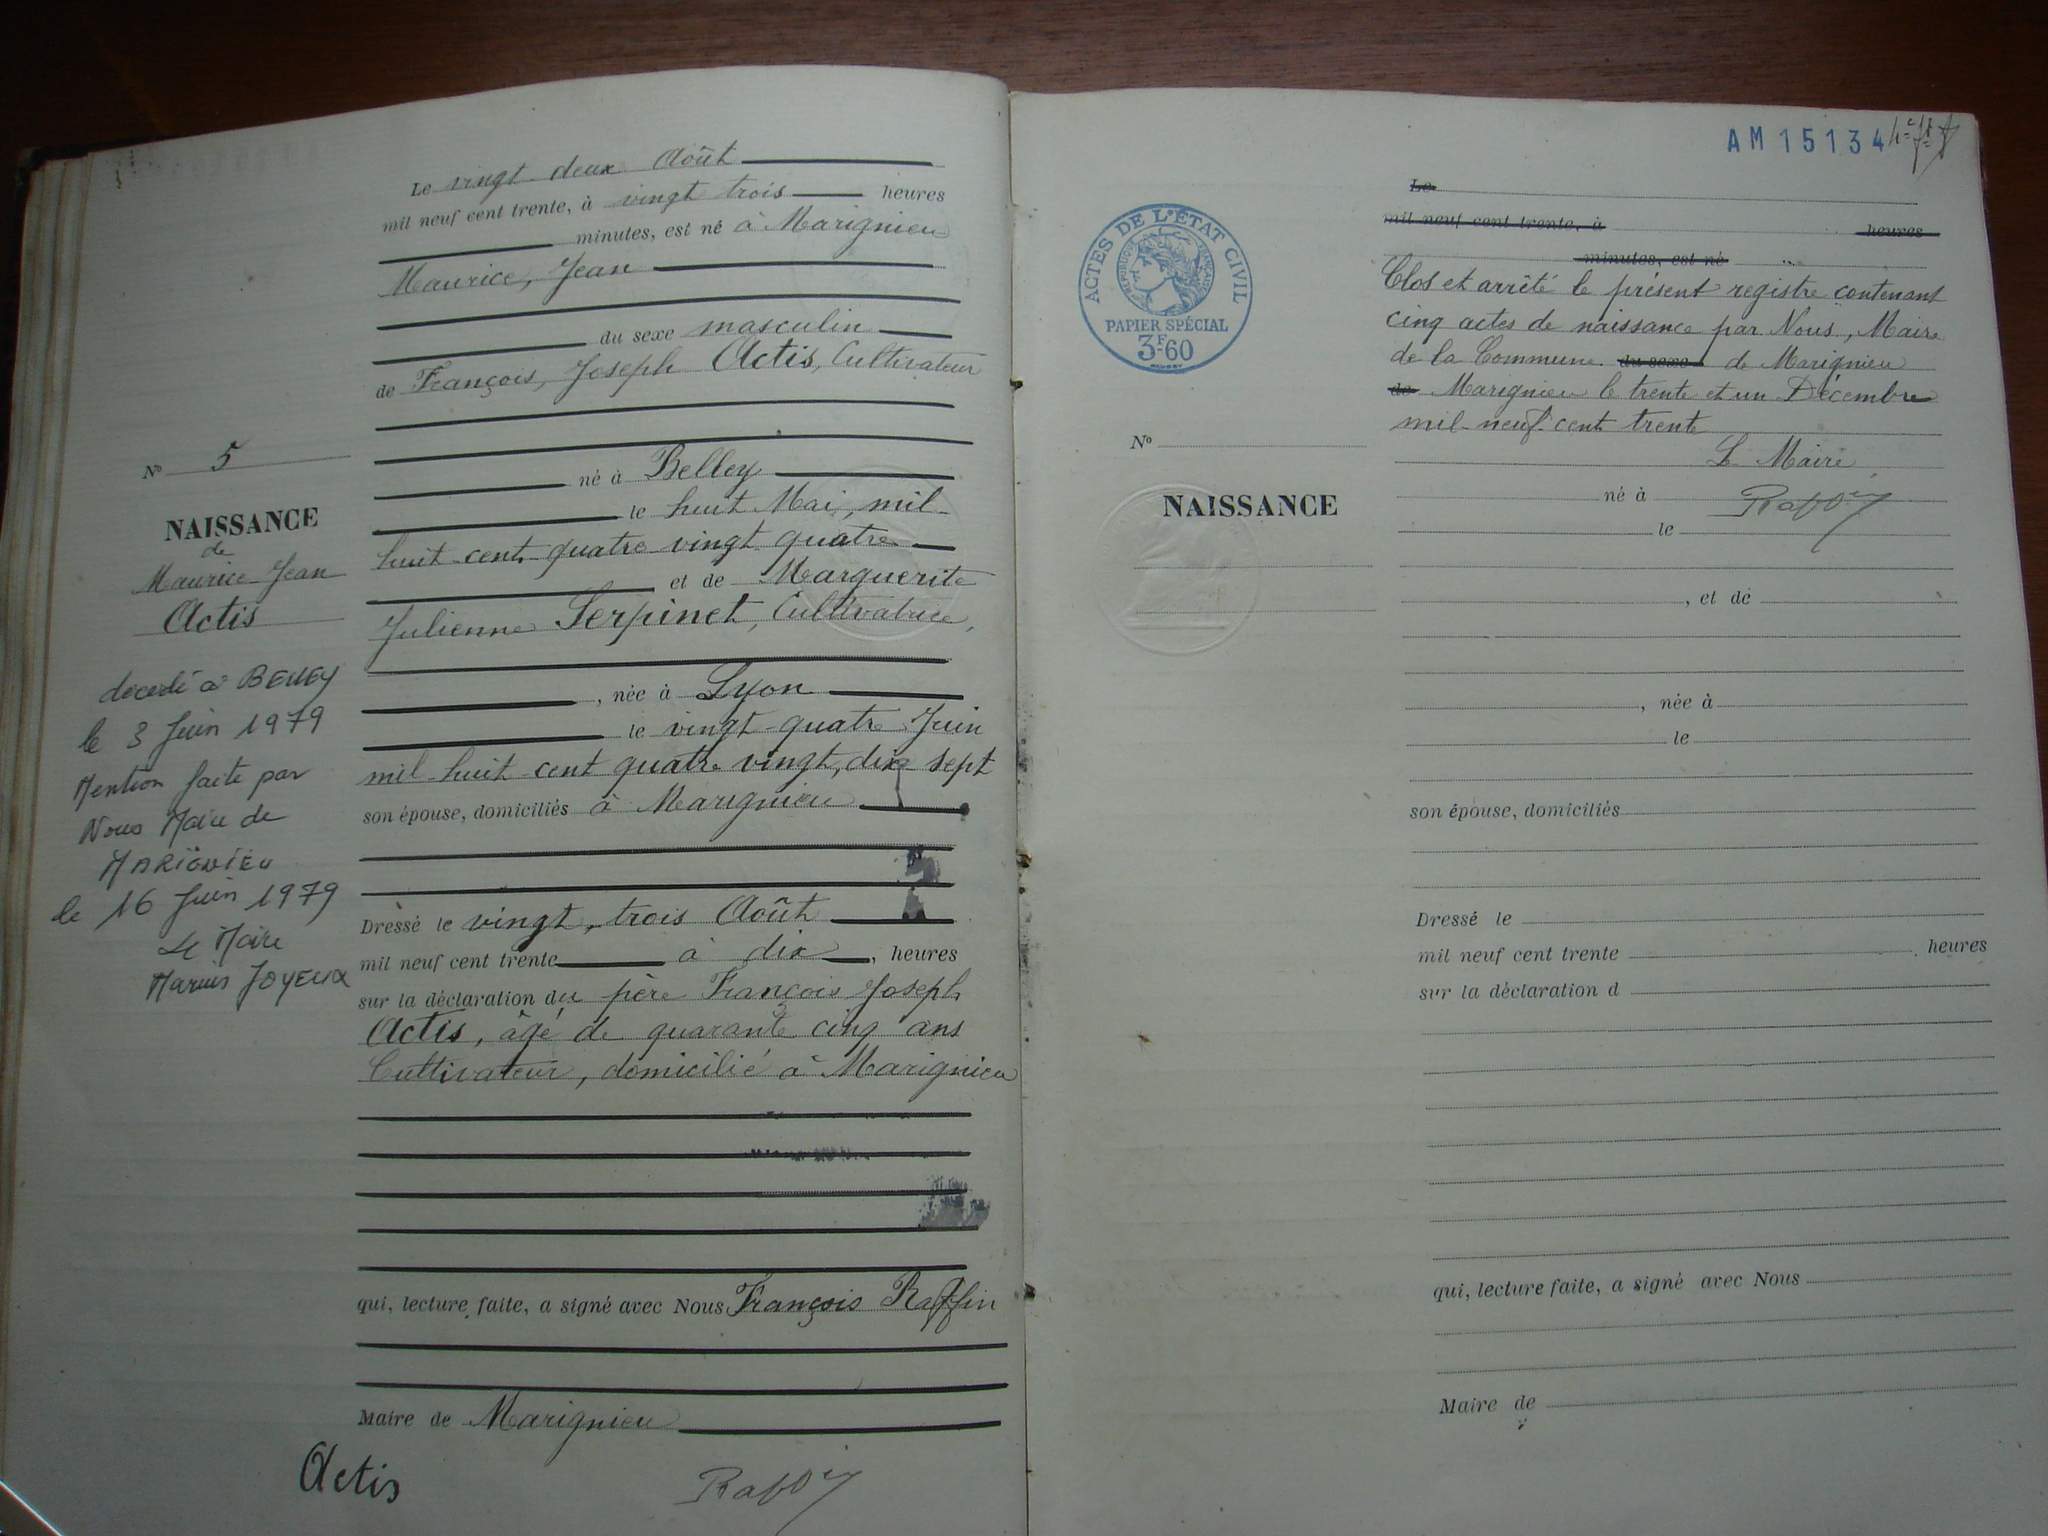 Le vingt deux Août
mil neuf cent trente, à vingt trois heures
minutes, est né à Marignieu
Maurice, Jean
du sexe masculin
de François, Joseph Actis, Cultivateur
né à Belley
le huit Mai, mil
huit cent quatre vingt quatre
et de Marguerite
Julienne Serpinet, Cultivatrice,
, née à Lyon
le vingt quatre Juin
mil huit cent quatre vingt, dix sept
son épouse, domiciliés à Marignieu
Dressé le vingt, trois Août
mil neuf cent trente à dix, heures
sur la déclaration du père François Joseph
Actis, âgé de quarante cinq ans
Cultivateur, domicilié à Marignieu
qui, lecture faite, a signé avec Nous François Raffin
Maire de Marignieu
Actis
No 5
NAISSANCE
de
Maurice Jean
Actis
décédé à BELLEY
le 3 Juin 1979
Mention faite par
Nous Maire de
MARIGNIEU
le 16 Juin 1979
Le Maire
Marius JOYEUX
AM 15134
ACTES DE L'ÉTAT CIVIL
RÉPUBLIQUE FRANÇAISE
PAPIER SPÉCIAL
3F60
Le
mil neuf cent trente, à heures
minutes, est né
Clos et arrêté le présent registre contenant
cinq actes de naissance par Nous, Maire
de la Commune du sexe de Marignieu
de Marignieu le trente et un Décembre
mil neuf cent trente
L Maire
No
NAISSANCE
né à
le
, et de
, née à
le
son épouse, domiciliés
Dressé le
mil neuf cent trente heures
sur la déclaration d
qui, lecture faite, a signé avec Nous
Maire de